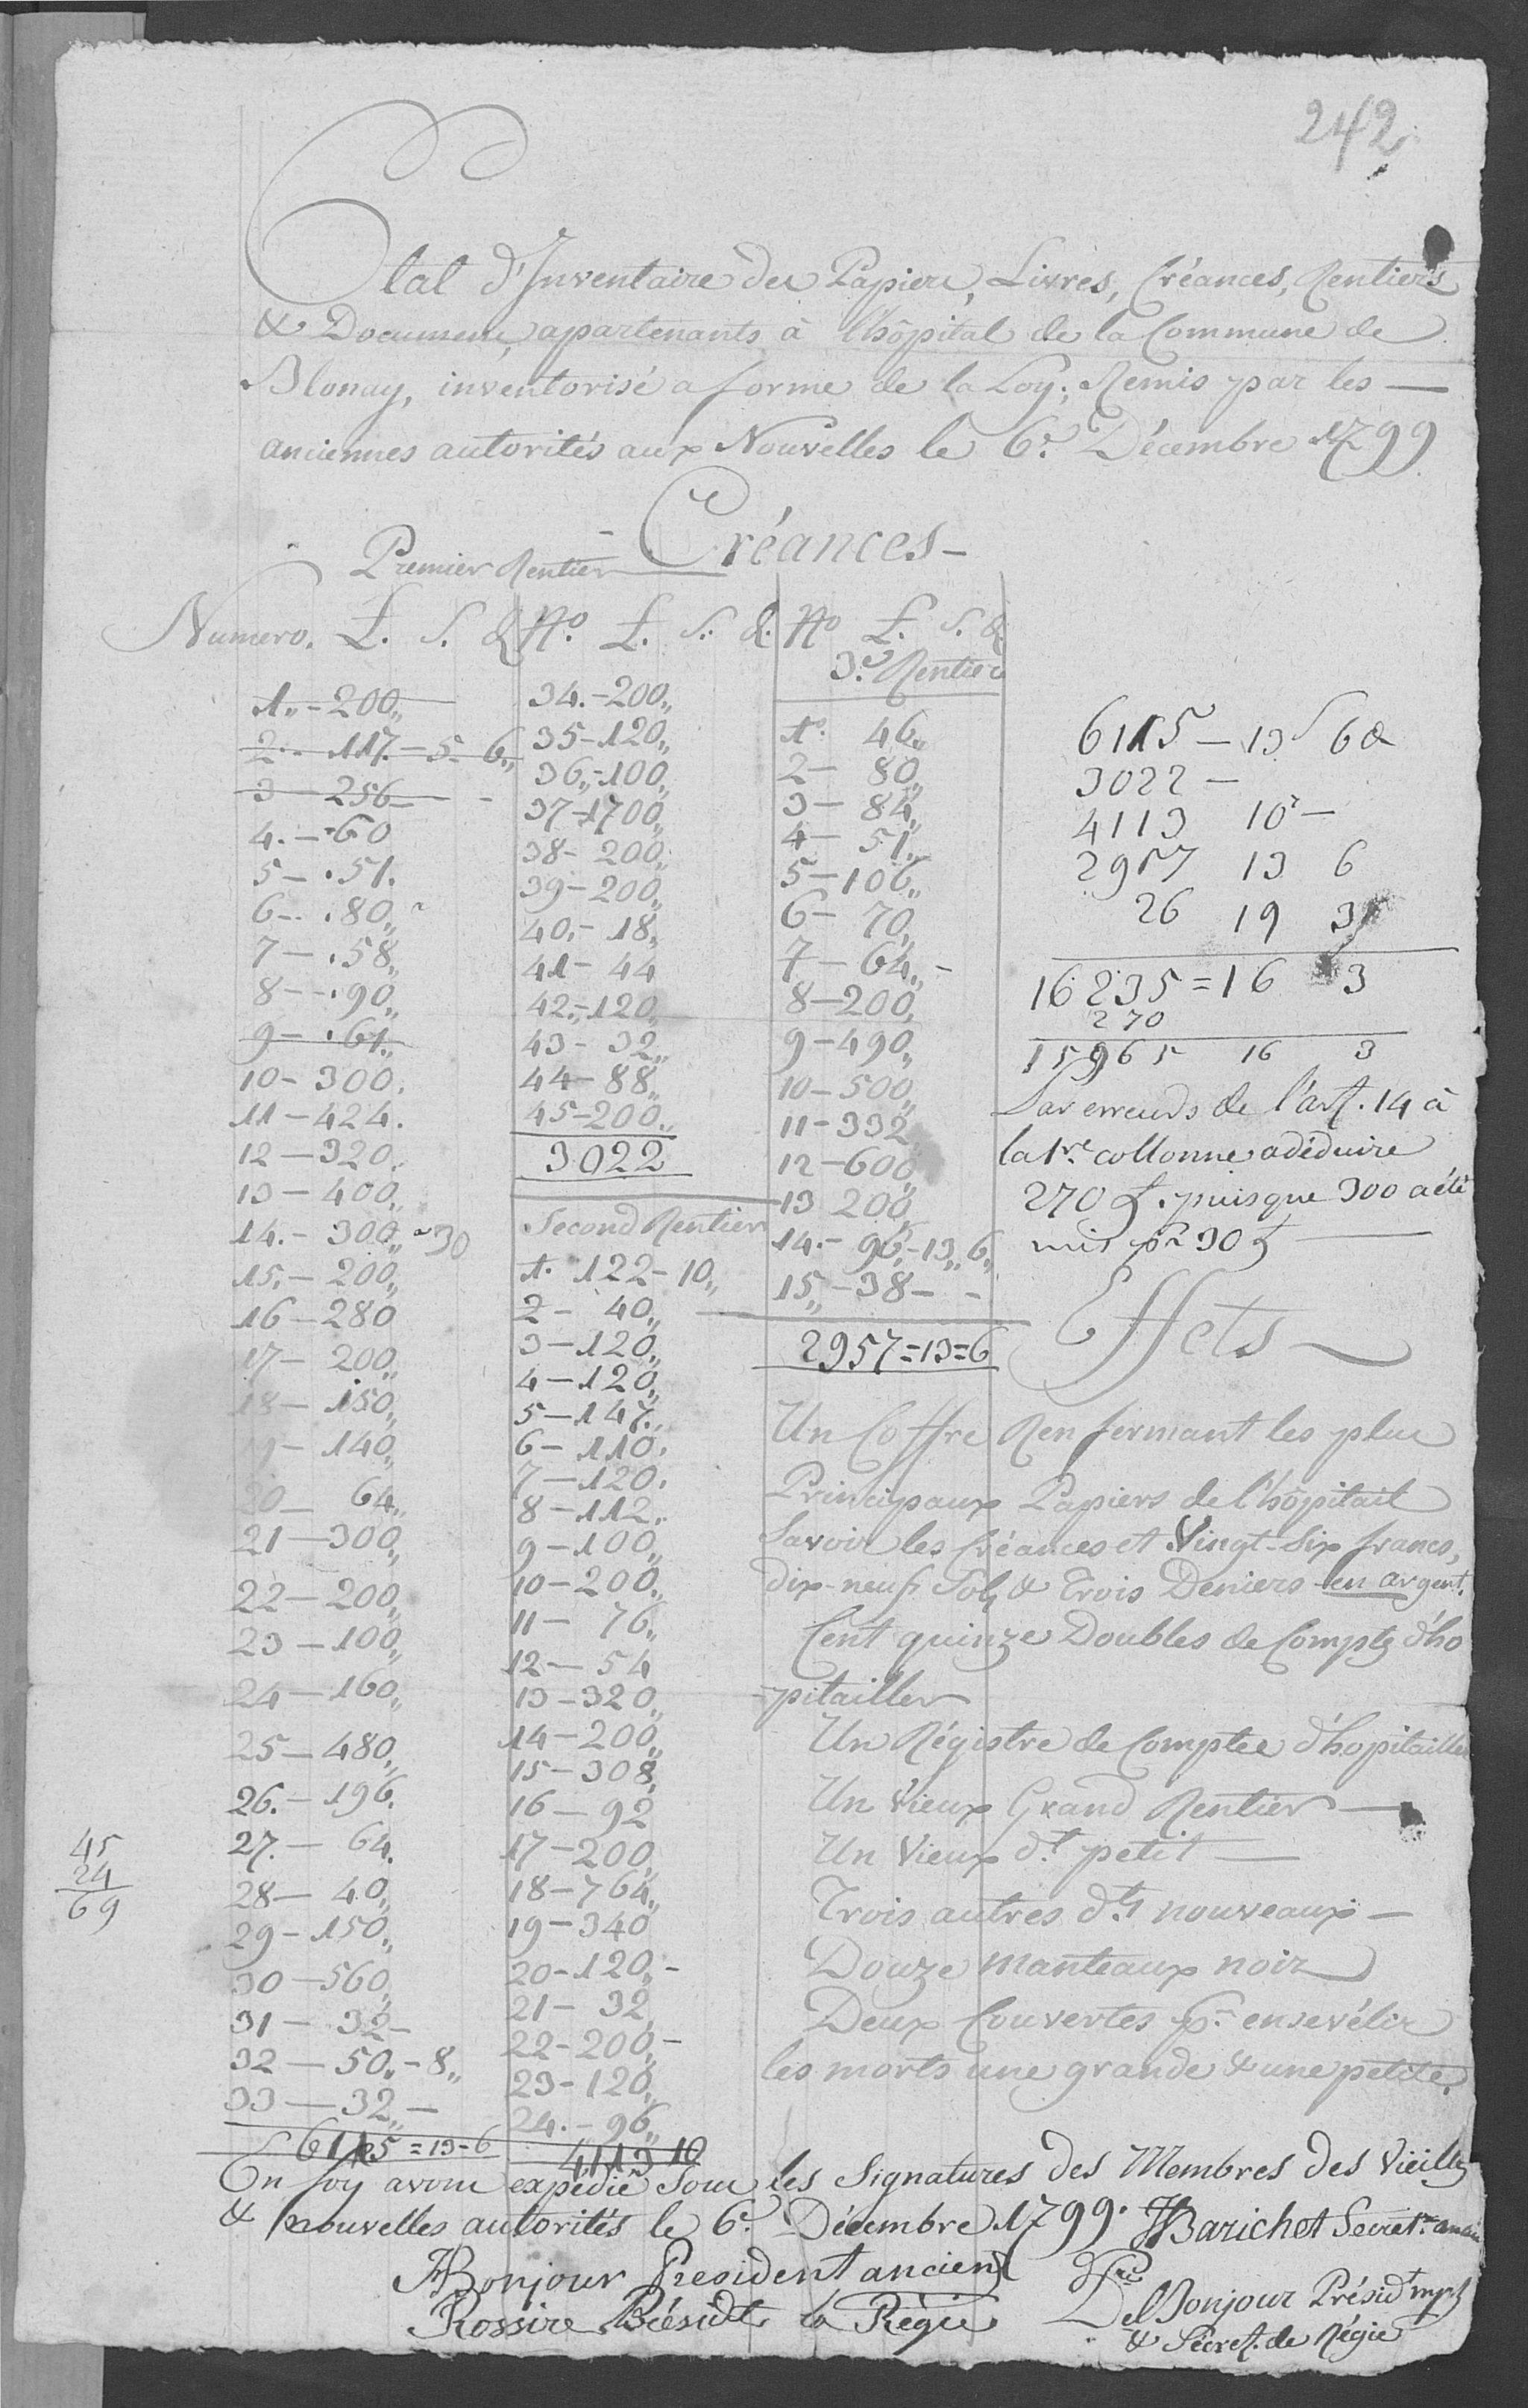 242
Etat d'Inventaire des Papiers, Livres, Créances, Rentiers
& Documens, apartenants à l'hôpital de la Commune de
Blonay, inventorisé a forme de la Loy; Remis par les —
anciennes autorités aux Nouvelles le 6.e Décembre 1799
Créances —
Premier Rentier
Numero. L. S. d
1.. - 200,,
2.. - 117. - 5 - 6,,
3 - 256 -
4. - 60
5 - 51.
6 - 80,,
7 - 58,,
8 - 90,,
9 - 61,,
10 - 300.
11 - 424.
12 - 320.
13 - 400,,
14. - 300,, 30
15. - 200,,
16 - 280
17 - 200,,
18 - 150,,
19 - 140,,
20 - 64,,
21 - 300,,
22 - 200,,
23 - 100,,
24 - 160,,
25 - 480,,
26. - 196.
27. - 64.
28 - 40,,
29 - 150,,
30 - 560,
31 - 32 -
32 - 50,, - 8,,
33 - 32,, -
6115 = 13 - 6
45
24
69
No. L. S. d.
34. - 200,,
35 - 120,,
36,, - 100,,
37 - 1700,,
38 - 200,,
39 - 200,,
40. - 18,,
41 - 44
42. - 120,,
43 - 32,,
44 - 88,,
45 - 200,,
3022
Second Rentier
1. 122 - 10,,
2 - 40,,
3 - 120,,
4 - 120,,
5 - 147,,
6 - 110.
7 - 120.
8 - 112.
9 - 100,,
10 - 200,,
11 - 76,,
12 - 54
13 - 320,,
14 - 200,,
15 - 308,
16 - 92
17 - 200,
18 - 764,,
19 - 340
20 - 120,, -
21 - 32,
22 - 200,, -
23 - 120,,
24. - 96,,
4113 10
No L. S. d
3.e Rentier
1o. 46,,
2 - 80,,
3 - 84,,
4 - 51,,
5 - 106,,
6 - 70,,
7 - 64,, -
8 - 200,,
9 - 490,,
10 - 500,,
11 - 332,
12 - 600,,
13 200,,
14. - 96,, - 13,, 6,,
15,, - 38 - -
2957 = 13 = 6
6115 - 13 S 6 d
3022 -
4113 10 -
2957 13 6
26 19 3
16235 = 16 3
270
15965 16 3
Par erreurs de l'art. 14 à
la 1re collonne a déduire
270 L. puisque 300 a été
mis pr 30 L
Effets
Un Coffre Renfermant les plus
Principaux Papiers de l'hôpitail
Savoir les Créances et Vingt-Six francs,
dix-neuf Sols & Trois Deniers en argent.
Cent quinze Doubles de Compts d'ho
-pitailler
Un Régistre de Comptes d'hopitailler
Un Vieux Grand Rentier —
Un Vieux dt petit —
Trois autres dts nouveaux —
Douze manteaux noir
Deux Couvertes pr ensevélir
les morts une grande & une petite.
En foy avons expédié sous les Signatures des Membres des Vieilles
& nouvelles autorités le 6.e Décembre 1799. Barichet Secret.re ancien
Bonjour President ancien
Rossire Présidt la Régie
Del Bonjour Présidt mpl
& Sécret. de Régie